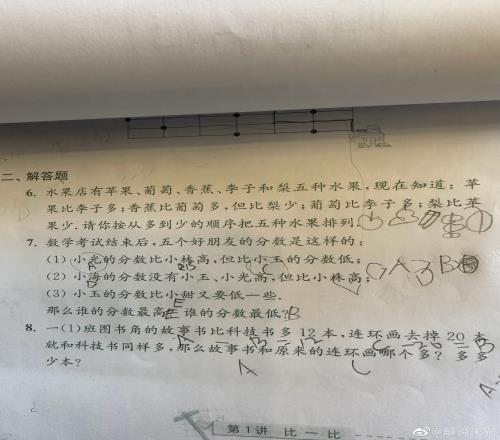 二、解答题
6. 水果店有苹果、葡萄、香蕉、李子和梨五种水果,现在知道:苹
果比李子多;香蕉比葡萄多,但比梨少;葡萄比李子多;梨比苹
果少.请你按从多到少的顺序把五种水果排列.
7. 数学考试结束后,五个好朋友的分数是这样的:
(1) 小光的分数比小林高,但比小玉的分数低;
A B C
(2) 小海的分数没有小玉、小光高,但比小林高;
D
(3) 小玉的分数比小甜又要低一些.
E
那么谁的分数最高?谁的分数最低?B
E
8. 一(1)班图书角的故事书比科技书多12本,连环画去掉20本
A B 12 C 20 B
就和科技书同样多,那么故事书和原来的连环画哪个多?多多
少本?
A C
第1讲 比一比